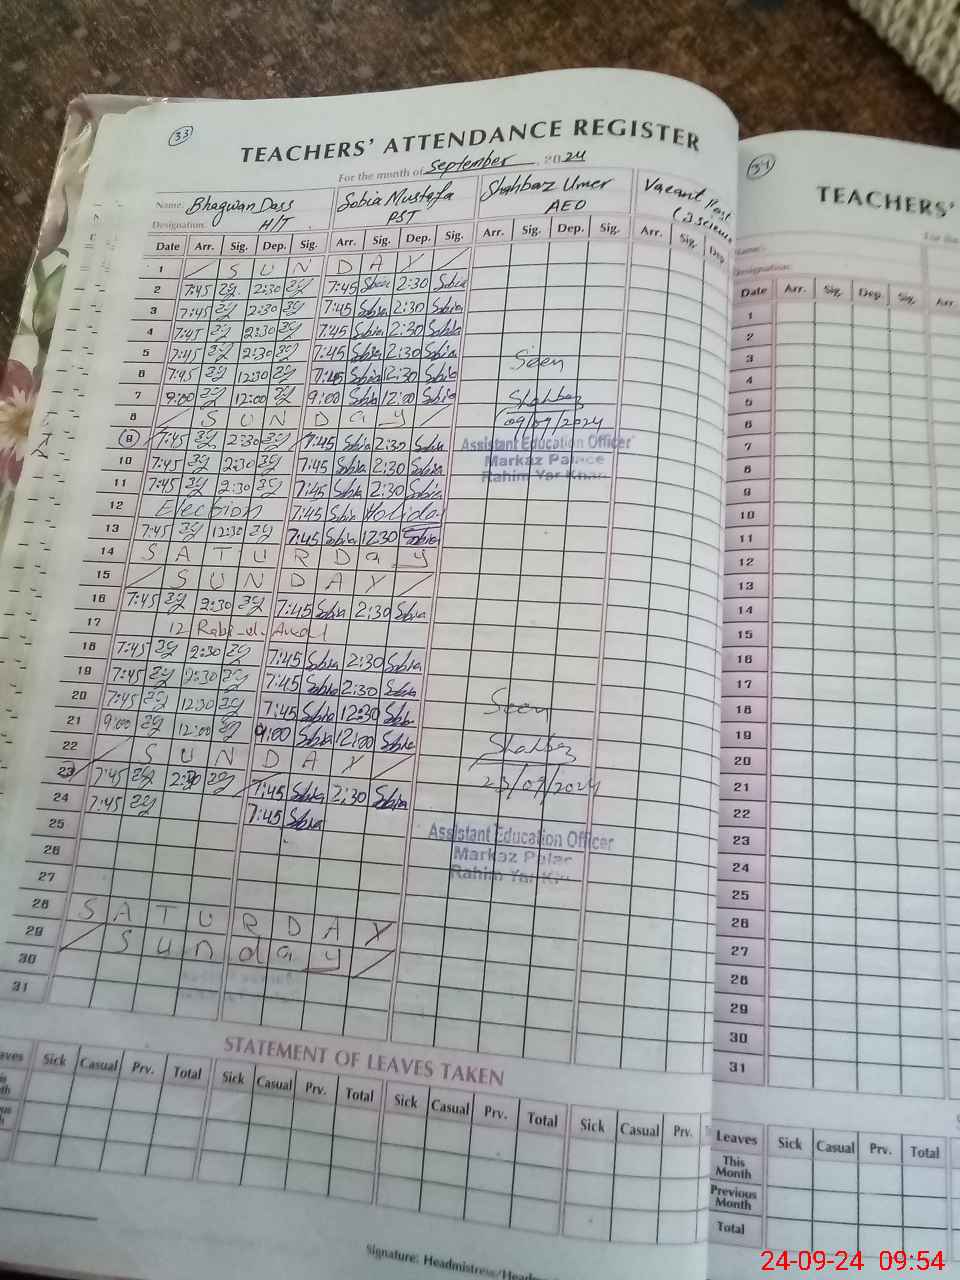 33
TEACHERS' ATTENDANCE REGISTER
For the month of September 2024
Name: Bhagwan Dass Sobia Mustafa Shahbaz Umer Vacant Post
Designation: H/T PST AEO (3 Science
Date Arr. Sig. Dep. Sig. Arr. Sig. Dep. Sig. Arr. Sig. Dep. Sig. Arr. Sig. Dep.
1 SUNDAY
2 7:45 2:30 7:45 Sobia 2:30 Sobia
3 7:45 2:30 7:45 Sobia 2:30 Sobia
4 7:45 2:30 7:45 Sobia 2:30 Sobia
5 7:45 2:30 7:45 Sobia 2:30 Sobia
6 7:45 12:30 7:45 Sobia 2:30 Sobia Seen
7 9:00 12:00 9:00 Sobia 12:00 Sobia Shahbaz
8 SUNDay 09/09/2024
9 7:45 2:30 7:45 Sobia 2:30 Sobia Assistant Education Officer
10 7:45 2:30 7:45 Sobia 2:30 Sobia Markaz Palace
11 7:45 2:30 7:45 Sobia 2:30 Sobia Rahim Yar Khan
12 Election 7:45 Sobia Holiday
13 7:45 12:30 7:45 Sobia 12:30 Sobia
14 SATURDay
15 SUNDAY
16 7:45 2:30 7:45 Sobia 2:30 Sobia
17 12 Rabi-ul-Awal
18 7:45 2:30 7:45 Sobia 2:30 Sobia
19 7:45 2:30 7:45 Sobia 2:30 Sobia
20 7:45 12:30 7:45 Sobia 12:30 Sobia Seen
21 9:00 12:00 9:00 Sobia 12:00 Sobia
22 SUNDAY Shahbaz
23 7:45 2:30 7:45 Sobia 2:30 Sobia 23/09/2024
24 7:45 7:45 Sobia
25 Assistant Education Officer
26 Markaz
27 Rahim Yar
28 SATURDAY
29 Sunday
30
31
STATEMENT OF LEAVES TAKEN
Sick Casual Prv. Total Sick Casual Prv. Total Sick Casual Prv. Total Sick Casual Prv.
Signature: Headmistress/
TEACHERS'
Name:
Designation:
Date Arr. Sig. Dep. Sig. Arr.
1
2
3
4
5
6
7
8
9
10
11
12
13
14
15
16
17
18
19
20
21
22
23
24
25
26
27
28
29
30
31
Leaves Sick Casual Prv. Total
This Month
Previous Month
Total
24-09-24 09:54